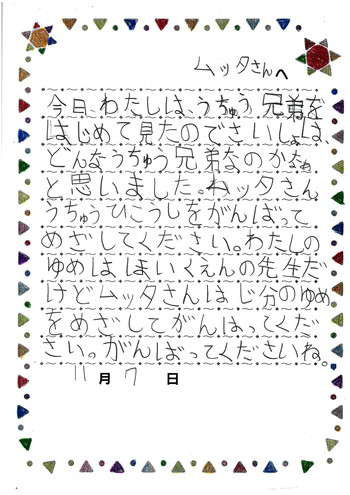 ムッタさんへ
今日、わたしは、うちゅう兄弟を
はじめて見たのでさいしょは、
どんなうちゅう兄弟なのかなぁ
と思いました。ムッタさん
うちゅうひこうしをがんばって
めざしてください。わたしの
ゆめは、ほいくえんの先生だ
けどムッタさんはじ分のゆめ
をめざしてがんはってくだ
さい。がんばってくださいね。
11月7日